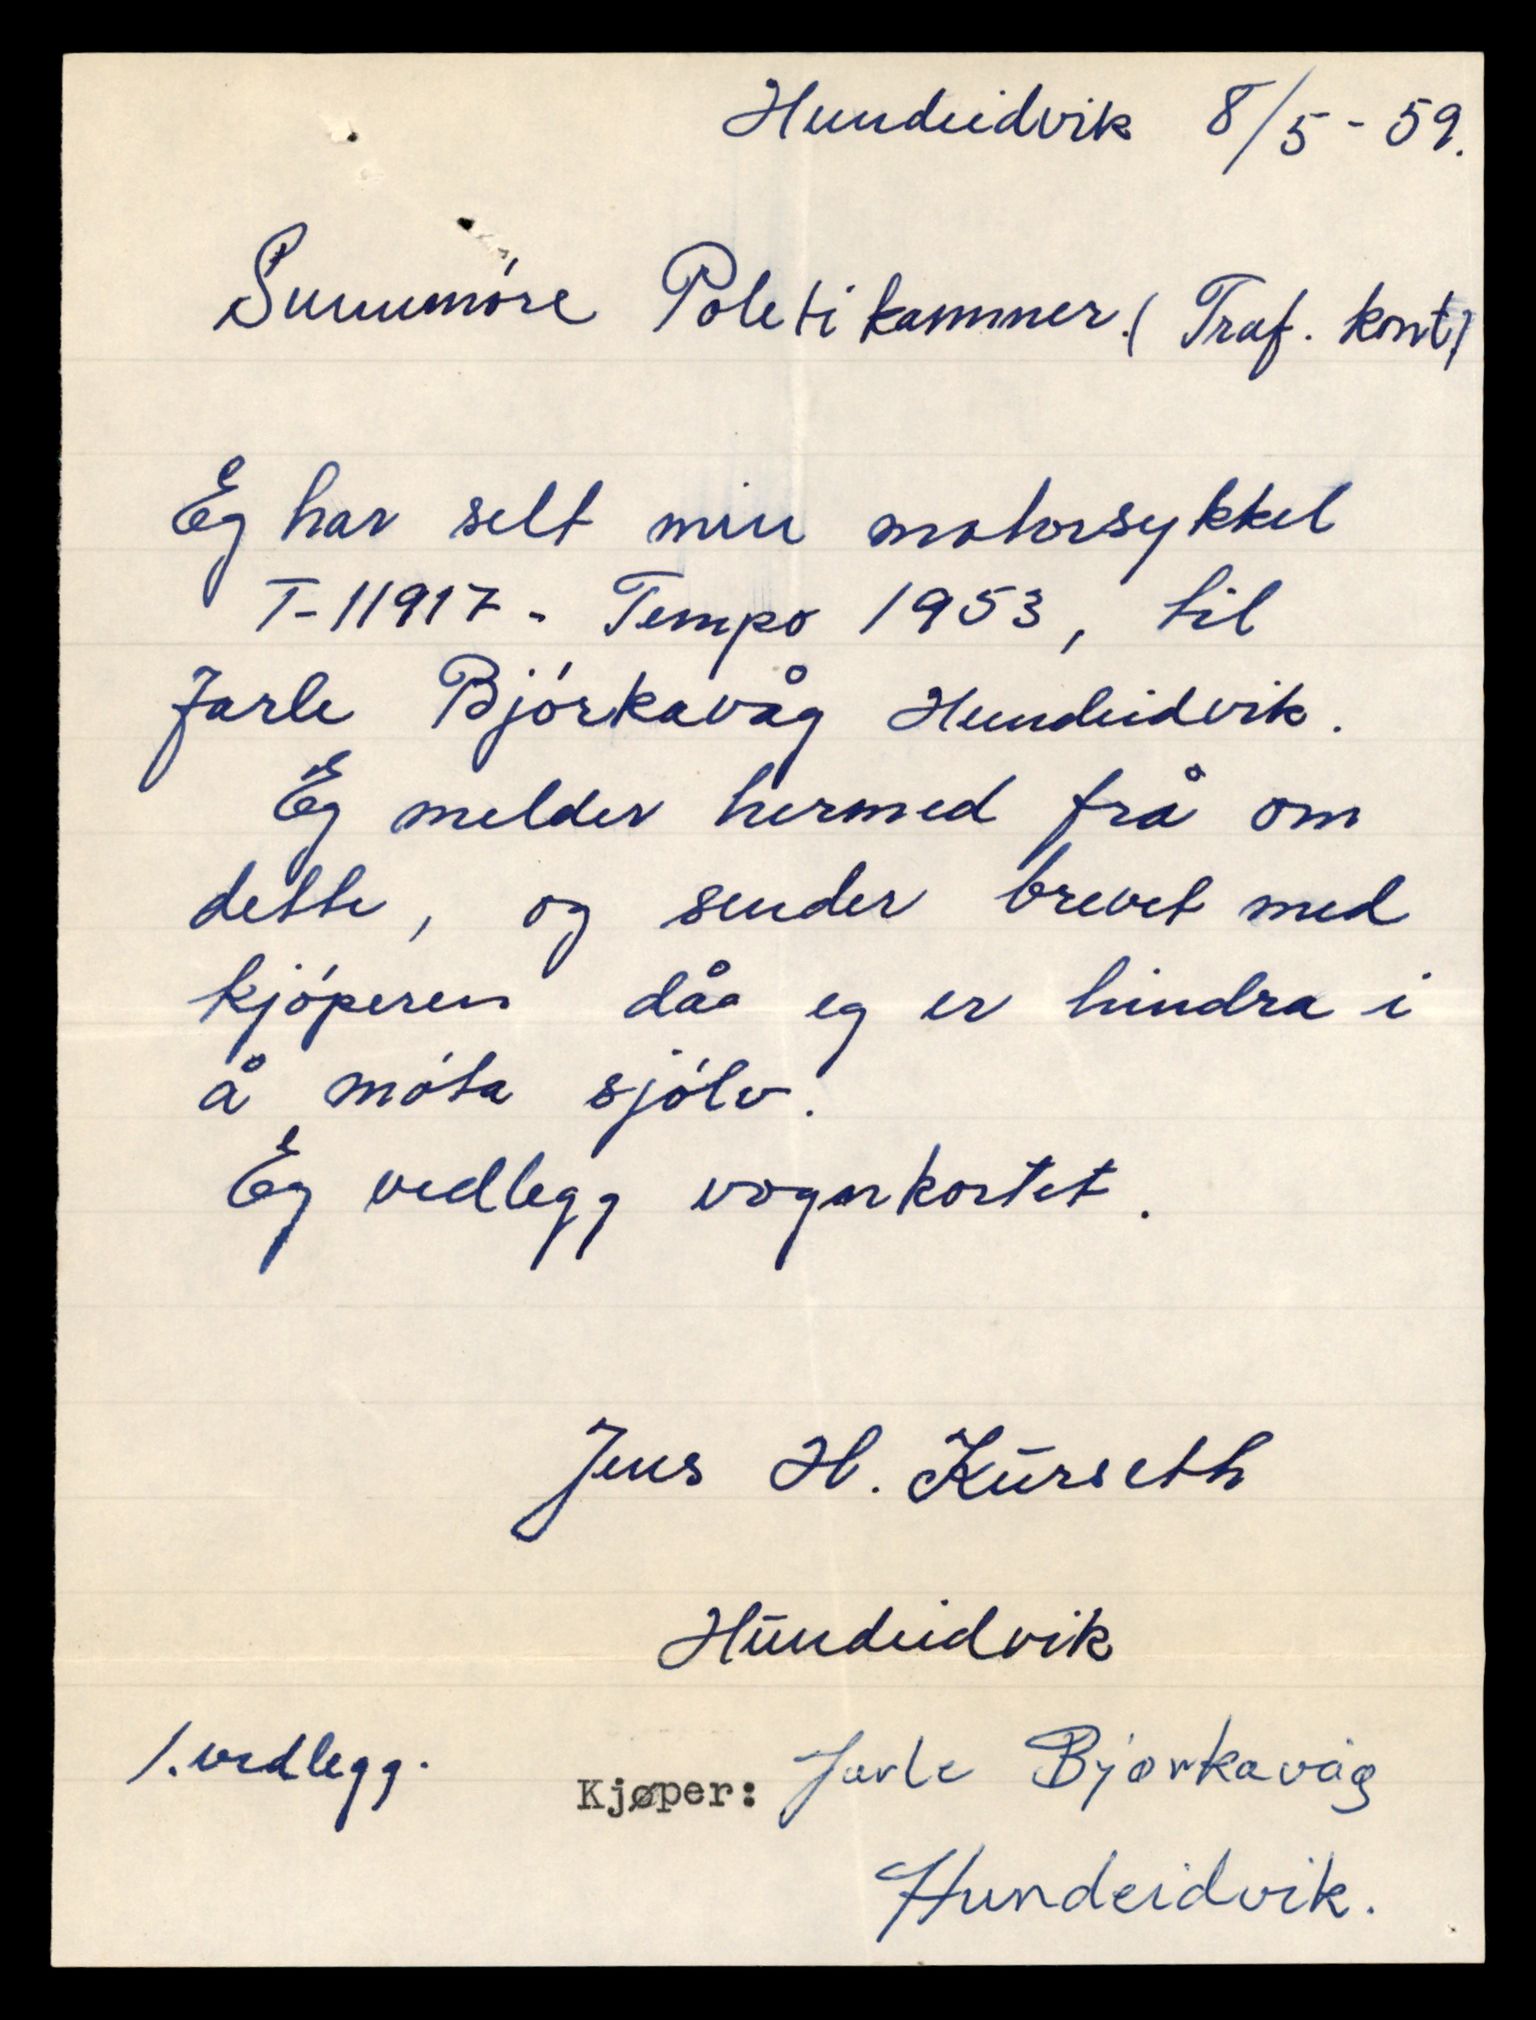 Hundeidvik 8/5 - 59.
Sunnmóre Poletikammer. (Traf. kont)
Eg har selt min motorsykkel
T-11917 - Tempo 1953, til
Jarle Bjórkavåg Hundeidvik.
Eg melder hermed frå om
dette, og sender brevet med
kjóperen då eg er hindra i
å móta sjólv.
Eg vedlegg vognkortet.
Jens H. Kūrseth
Hūndeidvik
1. vedlegg.
Kjøper: Jarle Bjørkavåg
Hundeidvik.